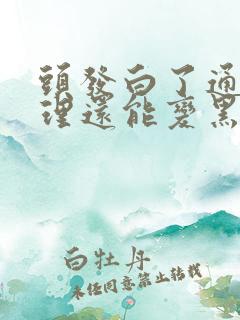 頭發白了通
理還能變黑
白牡丹
未经同意禁止转载